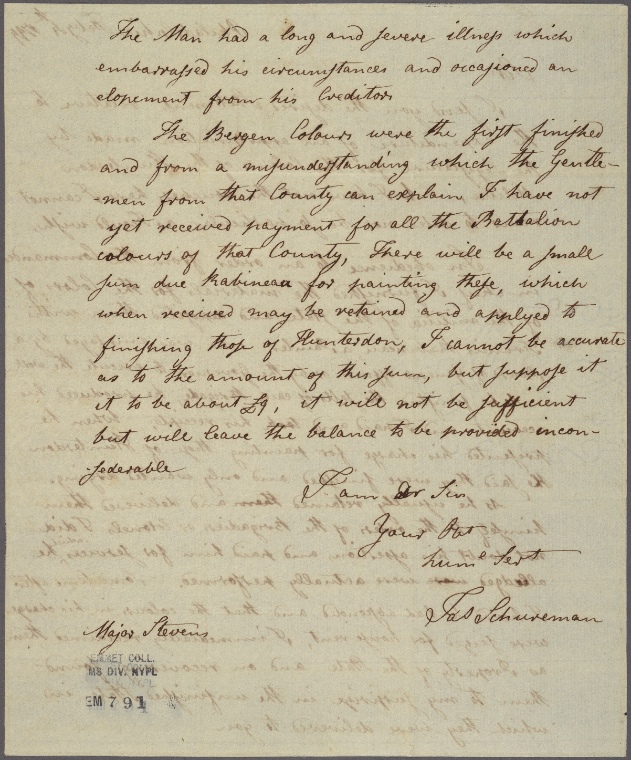 The Man had a long and severe illness which
embarrassed his circumstances and occasioned an
elopement from his Creditors
The Bergen Colours were the first finished
and from a misunderstanding which the Gentle-
-men from that County can explain I have not
yet received payment for all the Battalion
colours of that County, There will be a small
sum due Rabineau for painting these, which
when received may be retained and applyed to
finishing those of Hunterdon, I cannot be accurate
as to the amount of this sum, but suppose it
it to be about £9, it will not be sufficient
but will leave the balance to be provided incon-
-siderable
I am Dr Sir
Your Obt
humᵉ Sert
Jas Schureman
Major Stevens
EMMET COLL.
MS DIV. NYPL
EM 791